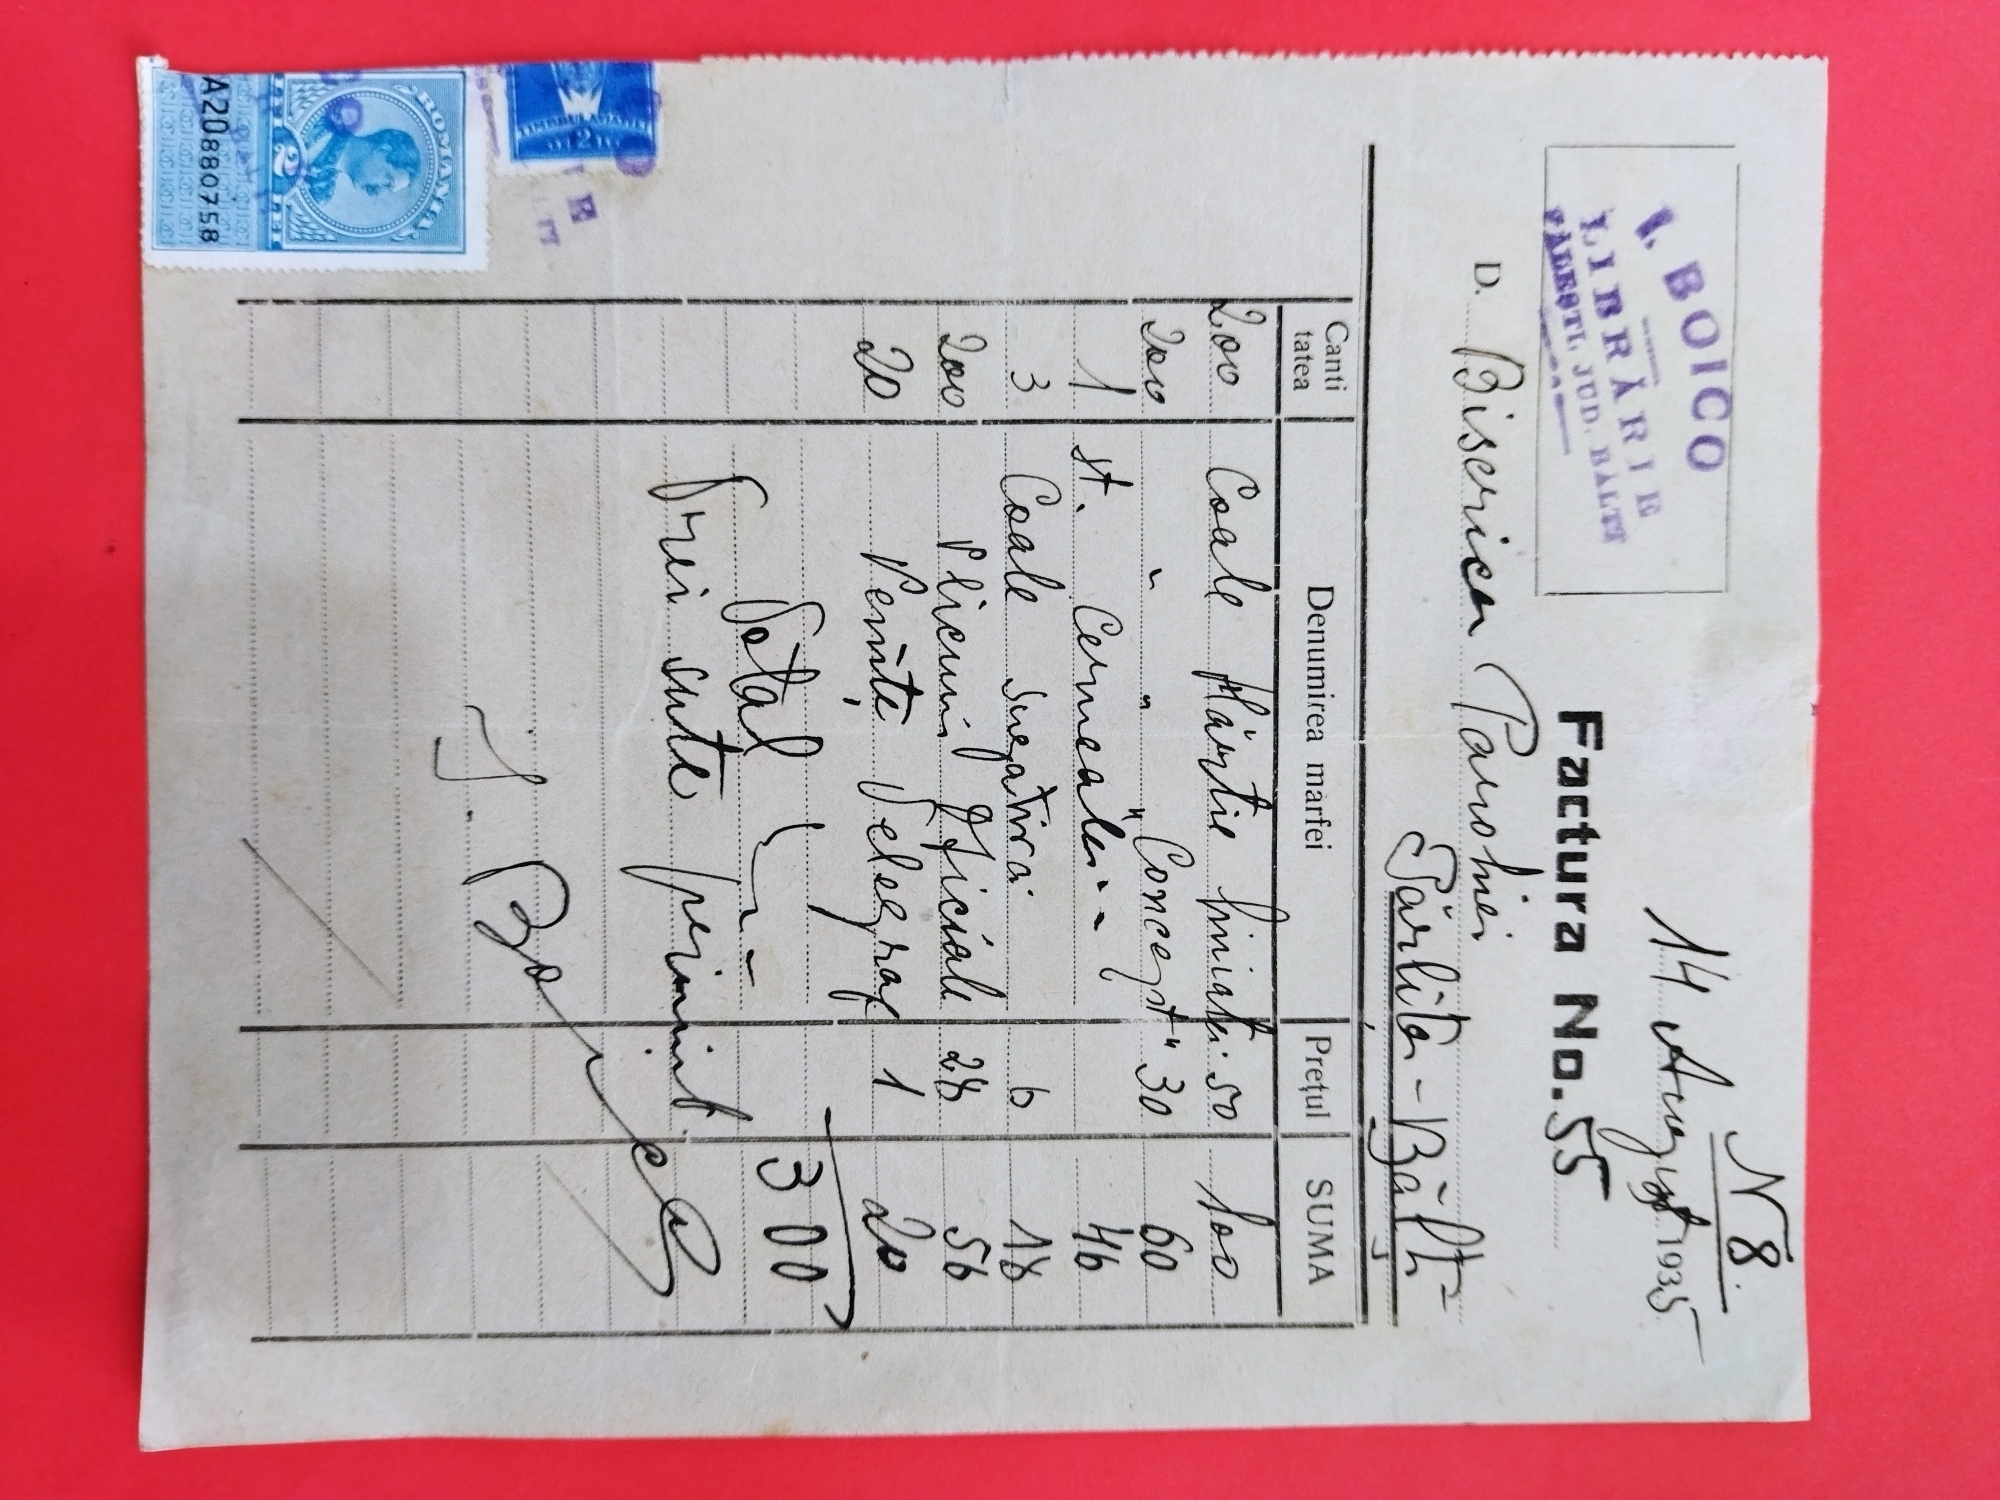 N 8
14 August 1935
I. BOICO
LIBRĂRIE
FĂLEȘTI, JUD. BĂLȚI
Factura No. 55
D. Biserica Parohiei
Pârlița - Bălți
Canti tatea Denumirea mărfei Prețul SUMA
200 Coale Hârtie liniate 50 100
200 " " " Concept " 30 60
1 st. Cerneală 46
3 Coale sugativă 6 18
200 Plicuri oficiale 28 56
20 Penițe Telegraf 1 20
Total 300
Trei sute primit.
I. Boico
ROMANIA
2 LEI
A20880758
TIMBRUL AVIAȚIEI
2